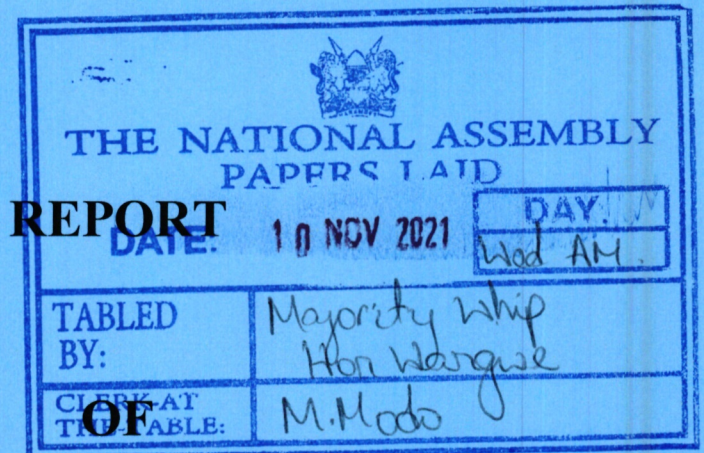 THE NATIONAL ASSEMBLY
PAPERS LAID
REPORT
DATE: 10 NOV 2021
DAY.
Wed AM.
TABLED BY:
Majority Whip
Hon Wangwe
CLERK-AT THE-TABLE:
M. Modo
OF